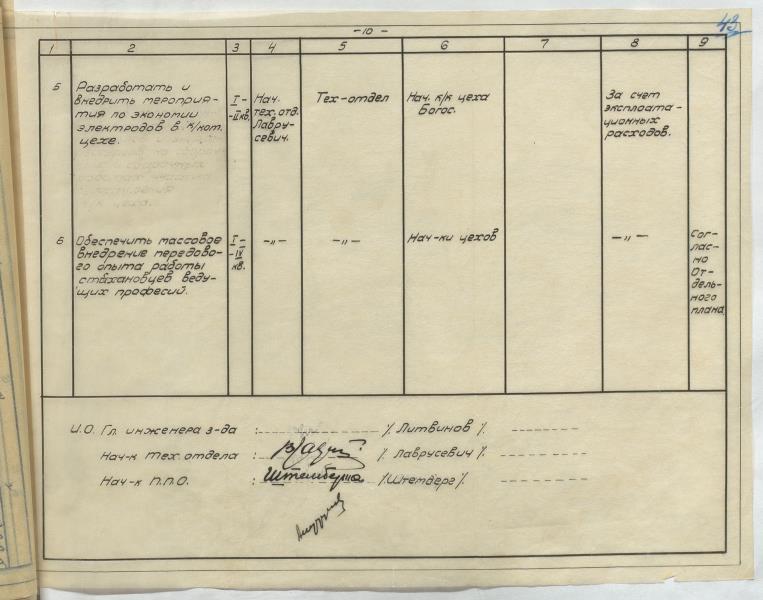 43
- 10 -
1 2 3 4 5 6 7 8 9
5 Разработать и
внедрить мероприя-
тия по экономии
электродов в к/кот.
цехе.
I-
-II кв.
Нач.
тех. отд.
Лавру-
севич.
Тех-отдел
Нач. к/к цеха
Богос.
За счет
эксплоата-
ционных
расходов.
6 Обеспечить массовое
внедрение передово-
го опыта работы
стахановцев веду-
щих професий.
I-
-IV
кв.
-"-
-"-
Нач-ки цехов
-"-
Сог-
лас-
но
От-
дель-
ного
плана
И.О. Гл. инженера з-да : /. Литвинов /.
Нач-к тех. отдела : /. Лаврусевич /.
Нач-к П.П.О. : Штемберг /. Штемберг /.